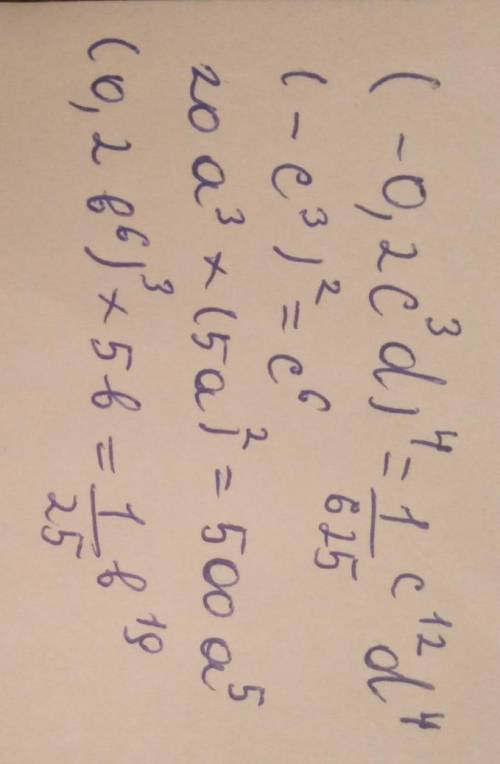 (-0,2c³d)⁴ = 1/625 c¹² d⁴
(-c³)² = c⁶
20 a³ × (5a)² = 500 a⁵
(0,2 b⁶)³ × 5b = 1/25 b¹⁹